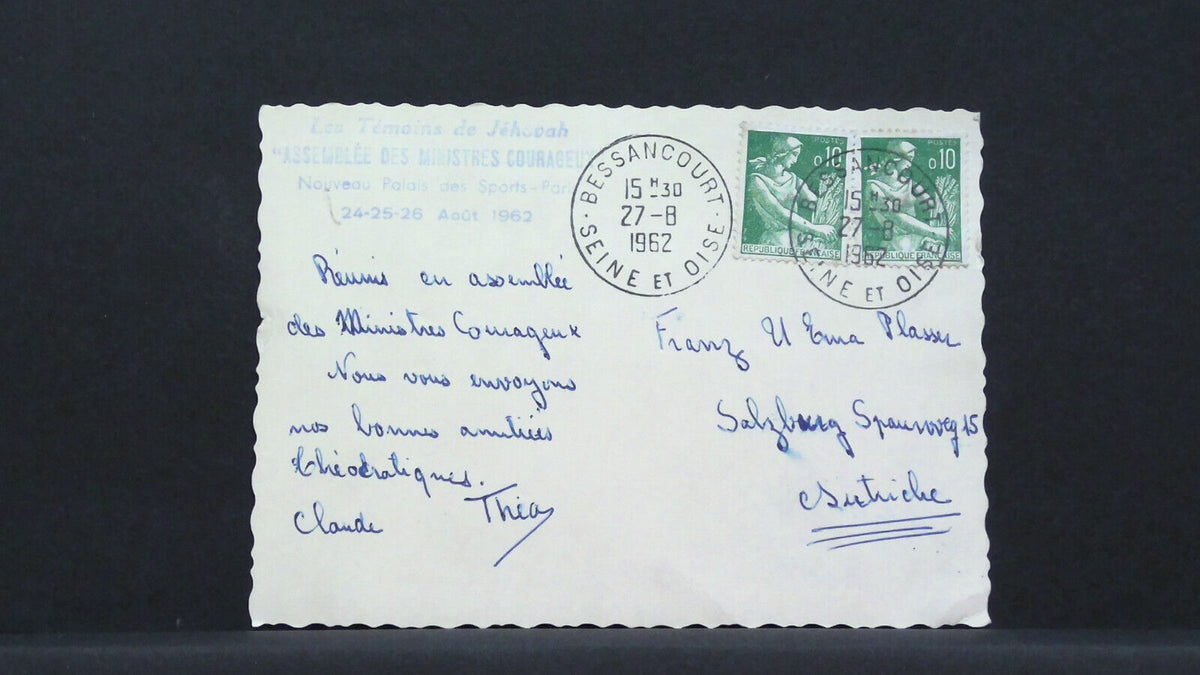 Les Témoins de Jéhovah
"ASSEMBLÉE DES MINISTRES COURAGEUX
Nouveau Palais des Sports-Paris
24-25-26 Août 1962
Réunis en assemblée
des Ministres Courageux
Nous vous envoyons
nos bonnes amitiées
théocratiques.
Claude Théa
BESSANCOURT
15 H 30
27-8
1962
SEINE ET OISE
POSTES
0,10
REPUBLIQUE FRANCAISE
POSTES
0,10
REPUBLIQUE FRANCAISE
BESSANCOURT
15 H 30
27-8
1962
SEINE ET OISE
Franz U Ema Plasser
Salzburg 15
Autriche